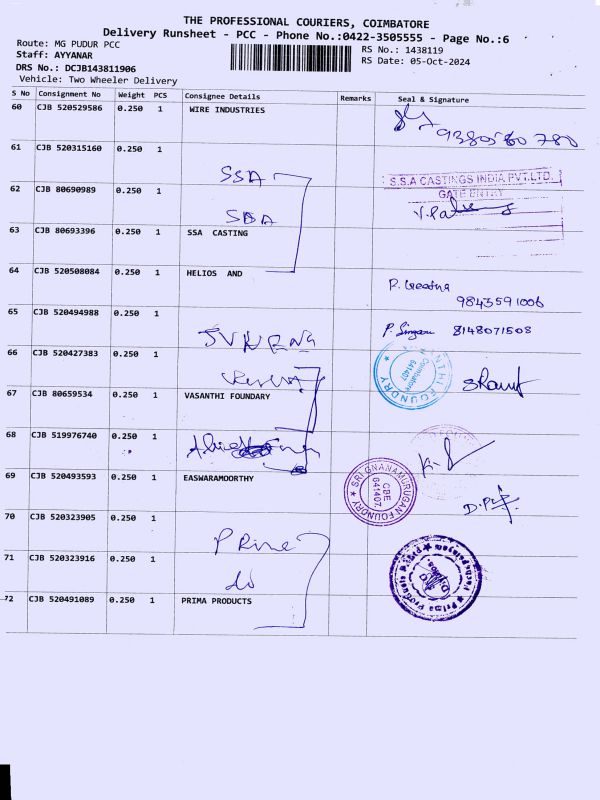 THE PROFESSIONAL COURIERS, COIMBATORE
Delivery Runsheet - PCC - Phone No.:0422-3505555 - Page No.:6
Route: MG PUDUR PCC
RS No.: 1438119
Staff: AYYANAR
RS Date: 05-Oct-2024
DRS No.: DCJB143811906
Vehicle: Two Wheeler Delivery
S No Consignment No Weight PCS Consignee Details Remarks Seal & Signature
60 CJB 520529586 0.250 1 WIRE INDUSTRIES
61 CJB 520315160 0.250 1
SSA
S.S.A CASTINGS INDIA PVT.LTD.
GATE ENTRY
62 CJB 80690989 0.250 1
SSA
63 CJB 80693396 0.250 1 SSA CASTING
64 CJB 520508084 0.250 1 HELIOS AND
9843591006
65 CJB 520494988 0.250 1
8148071508
66 CJB 520427383 0.250 1
FOUNDRY
Coimbatore
641407
67 CJB 80659534 0.250 1 VASANTHI FOUNDRY
68 CJB 519976740 0.250 1
69 CJB 520493593 0.250 1 EASWARAMOORTHY
SRI GNANAMURUGAN FOUNDRY
CBE
641407
70 CJB 520323905 0.250 1
Prime
71 CJB 520323916 0.250 1
do
Prima Products
72 CJB 520491089 0.250 1 PRIMA PRODUCTS